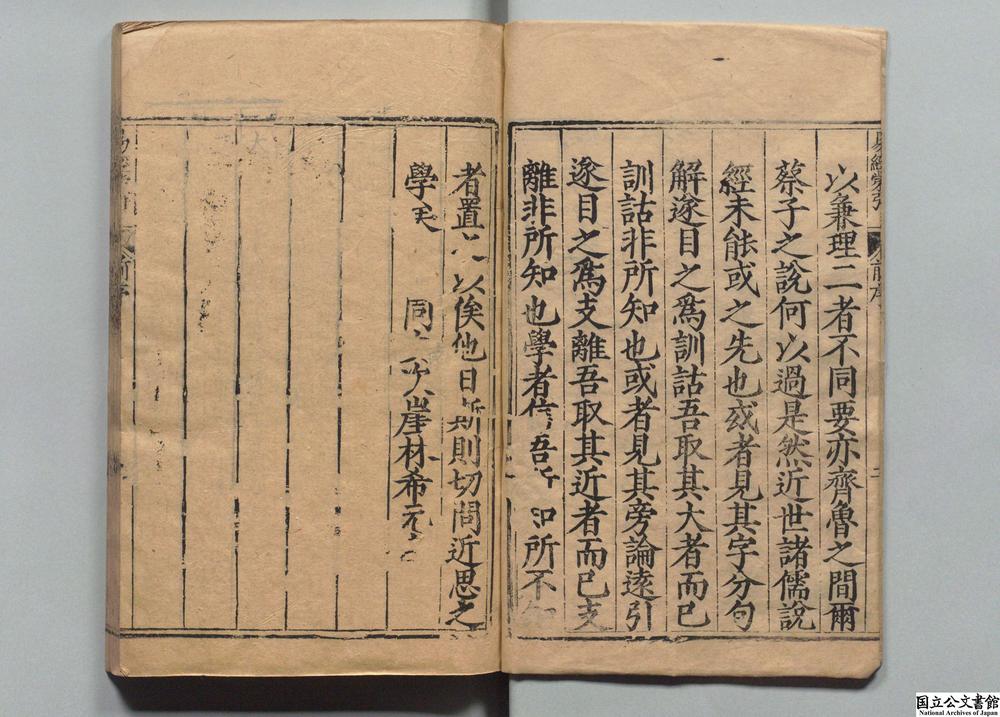 易經蒙引
前序
二
以兼理二者不同要亦齊魯之間爾
蔡子之說何以過是然近世諸儒說
經未能或之先也或者見其字分句
解遂目之為訓詁吾取其大者而已
訓詁非所知也或者見其旁論遠引
遂目之為支離吾取其近者而已支
離非所知也學者信吾所知所不知
者置之以俟他日斯則切問近思之
學矣
同 崖林希元
国立公文書館
National Archives of Japan